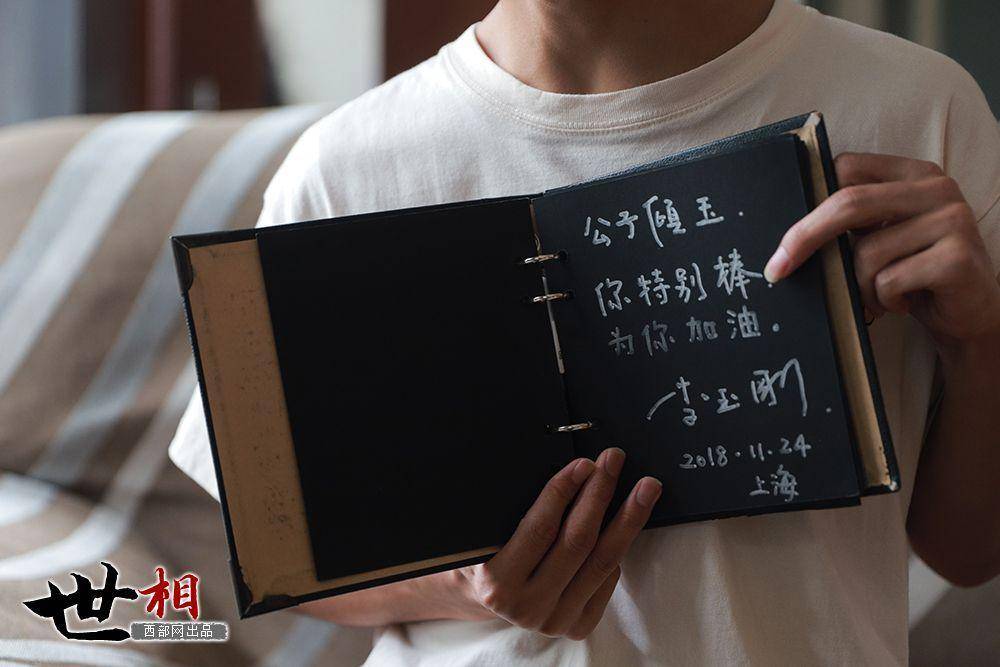 公子倾玉.
你特别棒.
为你加油.
李玉刚.
2018.11.24
上海
世相
西部网出品